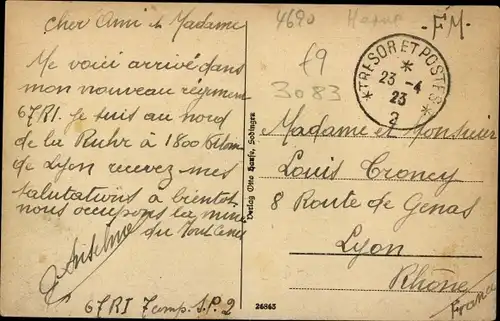 cher Ami & Madame
Me voici arrivé dans
mon nouveau régiment
67RI. Je suis au nord
de la Ruhr à 1800 Kilom
de Lyon recevez mes
salutations à bientôt
nous occupons la mine
du
J Anselme
67RI 7 S.P. 2
Verlag Otto Hanfe, Sodingen
26863
4690
-FM-
f9
3083
*TRESOR ET POSTES*
*
23 -4
23
2
Madame et Monsieur
Louis Croncy
8 Route de Genas
Lyon
Rhône
France